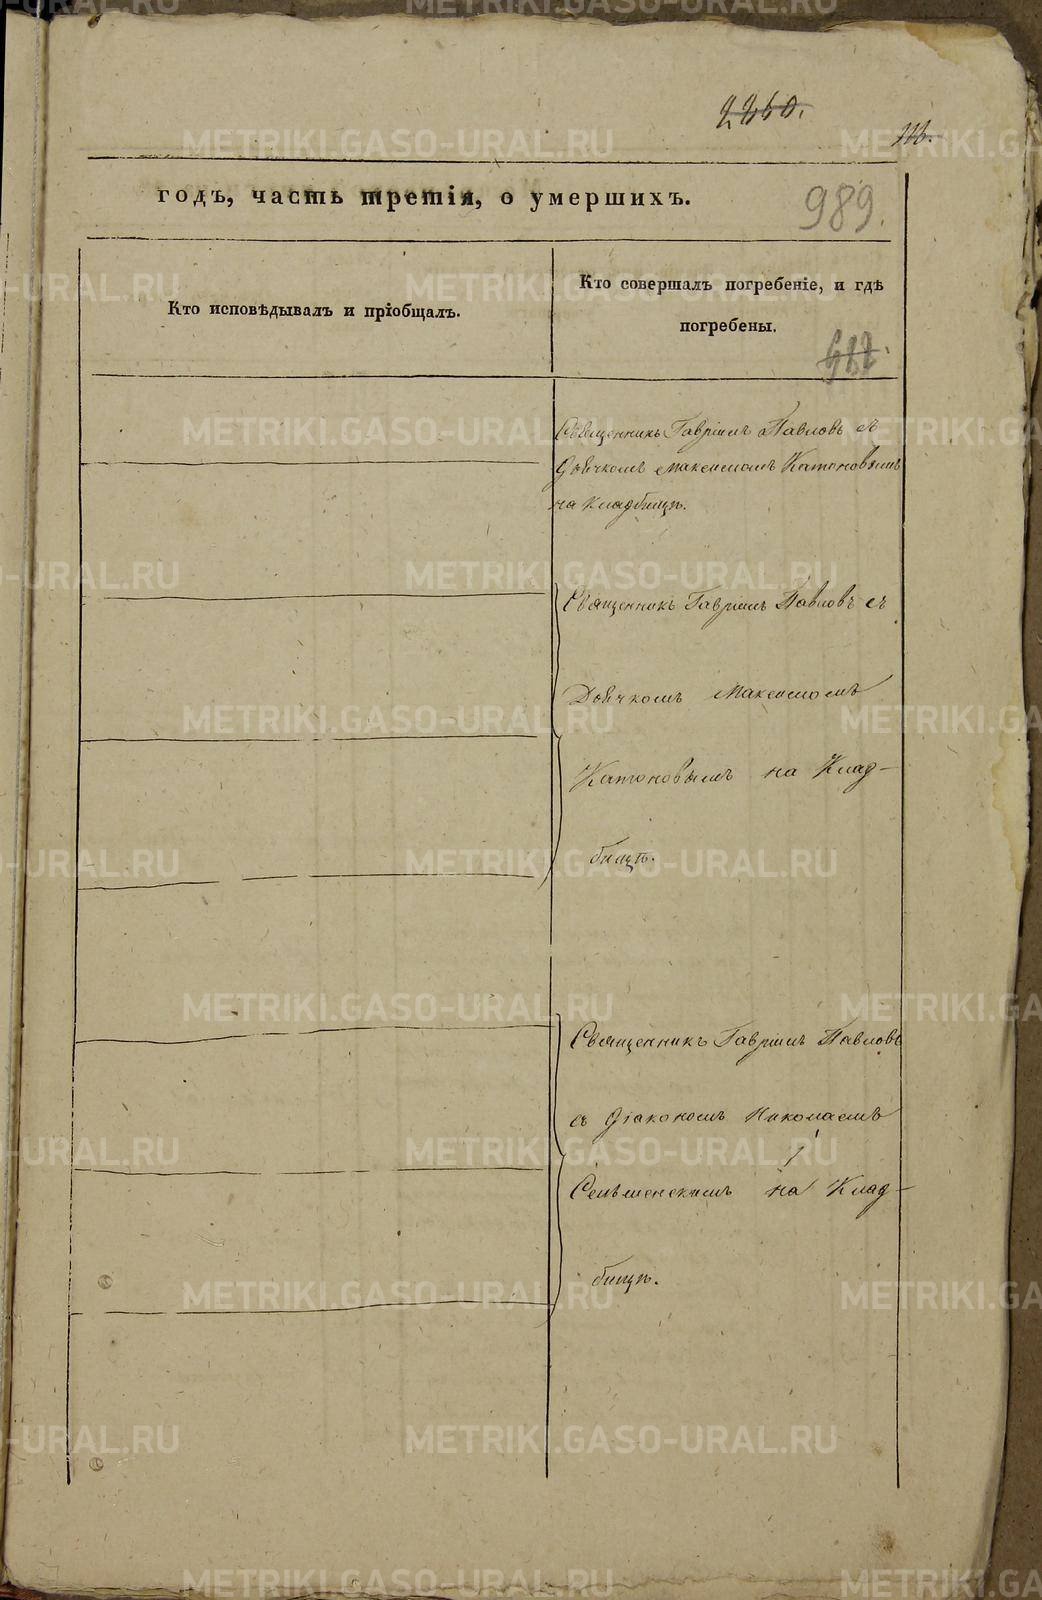 2260.
989.
годъ, часть третія, о умершихъ.
Кто исповѣдывалъ и пріобщалъ.
Кто совершалъ погребеніе, и гдѣ
погребены.
Священникъ Гавріилъ Павловъ съ
Дьячкомъ Максимомъ Катоновымъ
на кладбищѣ.
Священникъ Гавріилъ Павловъ съ
Дьячкомъ Максимомъ
Катоновымъ на Клад-
бищѣ.
Священникъ Гавріилъ Павловъ
съ Діакономъ Николаемъ
на Клад-
бищѣ.
METRIKI.GASO-URAL.RU